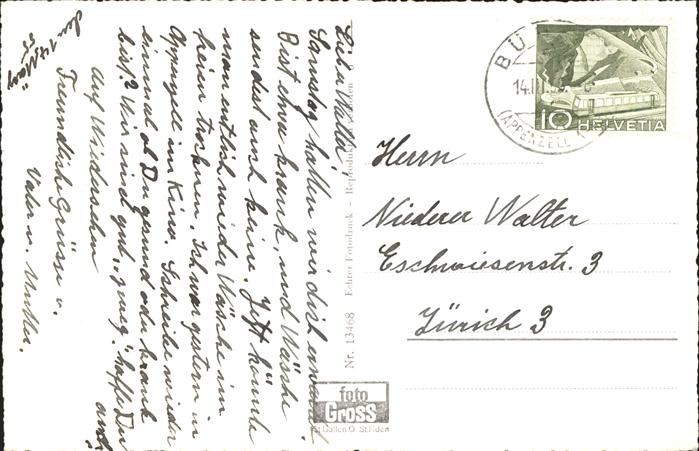 den 14. März
55
Lieber Walter!
Samstag hatten wir dich erwartet
Bist etwa krank, und Wäsche
sendest auch keine. Jetzt könnte
man entlich wieder Wäsche im
freien trocknen. Ich war gestern in
Appenzell im Kino. Schreibe wieder
einmal ob Du gesund oder krank
bist? Wir sind gut „zweg“ hoffe Du
auch
Auf Wiedersehen
Freundliche Grüsse v.
Vater u. Mutter.
Nr. 13468 Echter Fotodruck - Reproduktion
foto
Gross
St Gallen O St.Fiden
BÜ
14.III.55
(APPENZELL)
10 HELVETIA
Herrn
Niederer Walter
Eschwiesenstr. 3
Zürich 3